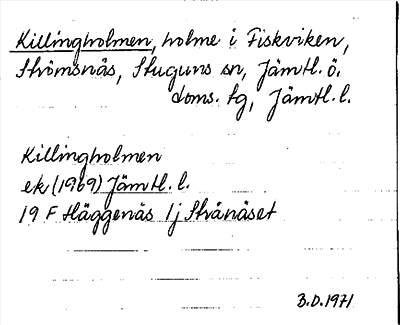 Killingholmen, holme i Fiskviken,
Strömsnäs, Stuguns sn, Jämtl. ö.
doms. tg, Jämtl. l.
Killingholmen
ek (1969) Jämtl. l.
19 F Häggenås 1j Stránäset
B.D. 1971